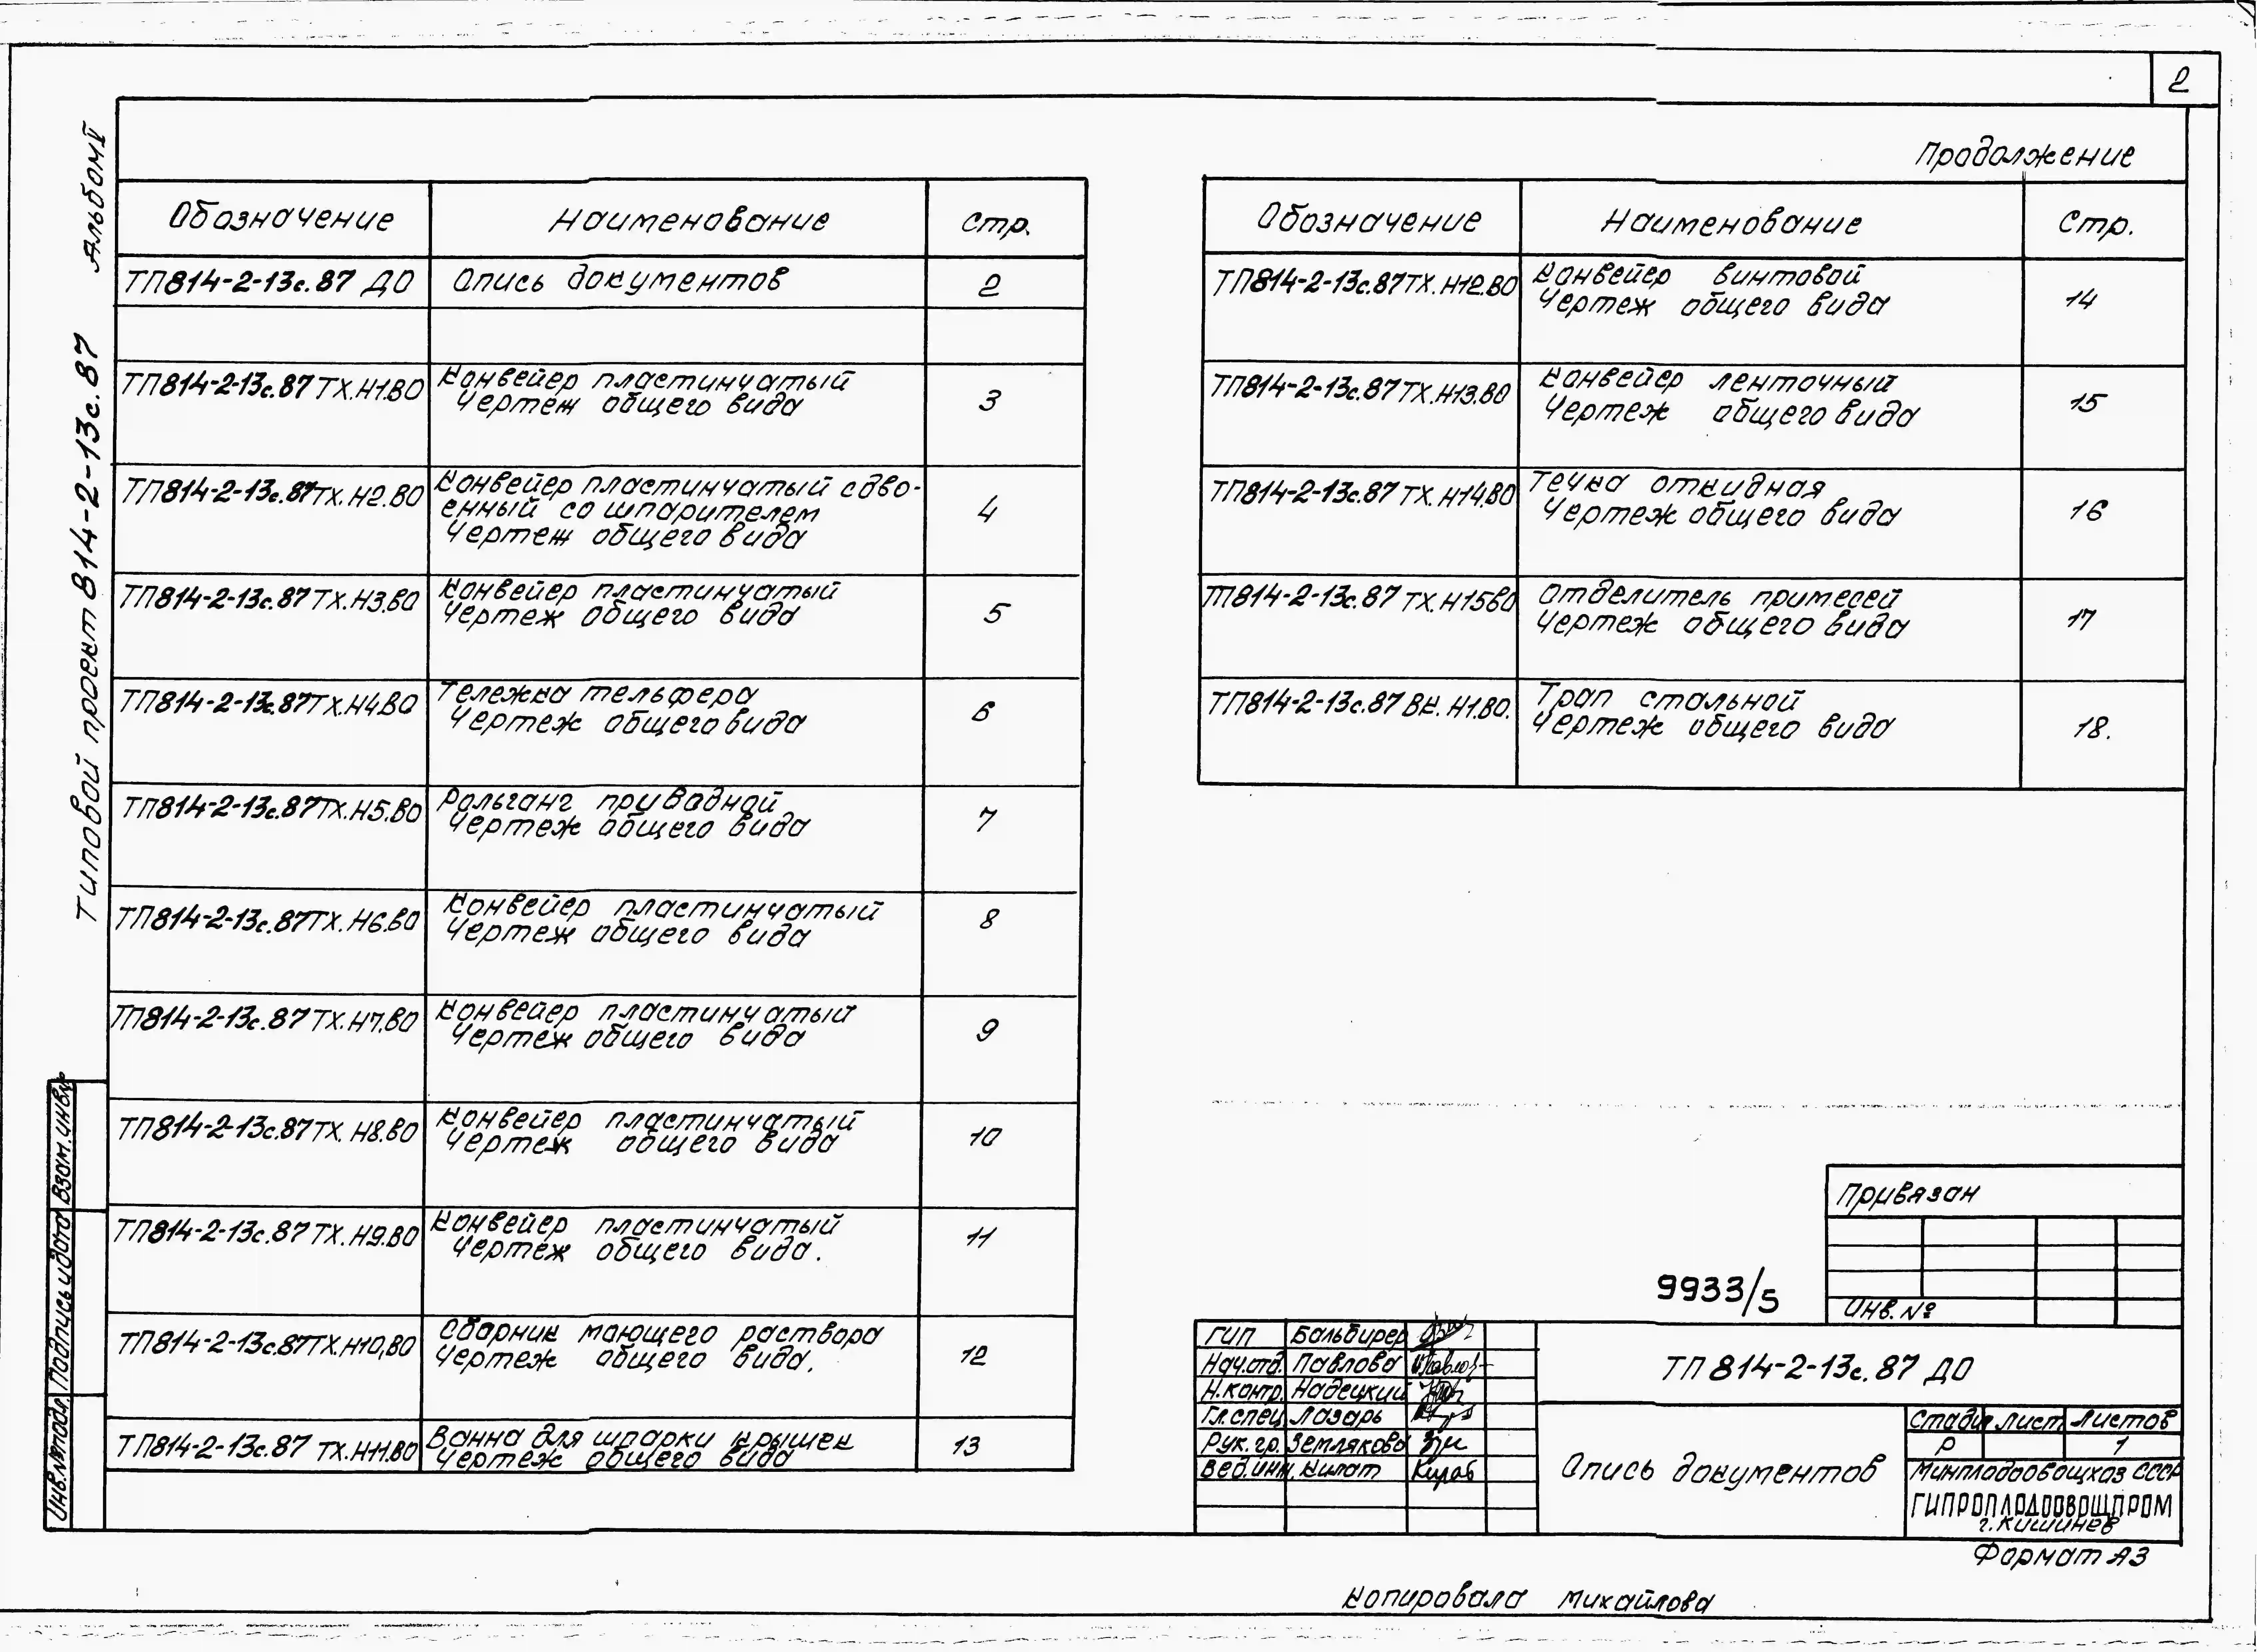 2
Альбом V
Типовой проект 814-2-13с.87
Обозначение Наименование Стр.
ТП814-2-13с.87 ДО Опись документов 2
ТП814-2-13с.87 ТХ.Н1.ВО Конвейер пластинчатый
Чертеж общего вида 3
ТП814-2-13с.87 ТХ.Н2.ВО Конвейер пластинчатый сдво-
енный со шпарителем
Чертеж общего вида 4
ТП814-2-13с.87 ТХ.Н3.ВО Конвейер пластинчатый
Чертеж общего вида 5
ТП814-2-13с.87 ТХ.Н4.ВО Тележка тельфера
Чертеж общего вида 6
ТП814-2-13с.87 ТХ.Н5.ВО Рольганг приводной
Чертеж общего вида 7
ТП814-2-13с.87 ТХ.Н6.ВО Конвейер пластинчатый
Чертеж общего вида 8
ТП814-2-13с.87 ТХ.Н7.ВО Конвейер пластинчатый
Чертеж общего вида 9
ТП814-2-13с.87 ТХ.Н8.ВО Конвейер пластинчатый
Чертеж общего вида 10
ТП814-2-13с.87 ТХ.Н9.ВО Конвейер пластинчатый
Чертеж общего вида. 11
ТП814-2-13с.87 ТХ.Н10.ВО Сборник моющего раствора
Чертеж общего вида. 12
ТП814-2-13с.87 ТХ.Н11.ВО Ванна для шпарки крышек
Чертеж общего вида 13
Продолжение
Обозначение Наименование Стр.
ТП814-2-13с.87 ТХ.Н12.ВО Конвейер винтовой
Чертеж общего вида 14
ТП814-2-13с.87 ТХ.Н13.ВО Конвейер ленточный
Чертеж общего вида 15
ТП814-2-13с.87 ТХ.Н14.ВО Течка откидная
Чертеж общего вида 16
ТП814-2-13с.87 ТХ.Н15ВО Отделитель примесей
Чертеж общего вида 17
ТП814-2-13с.87 ВК.Н1.ВО. Трап стальной
Чертеж общего вида 18.
Привязан
Инв.№
9933/5
ГИП Бальбирер
Нач.отд. Павлова
Н.контр. Надецкий
Гл.спец. Лазарь
Рук.гр. Землякова
Вед.инж. Килат
ТП 814-2-13с.87 ДО
Опись документов
Стадия Лист Листов
Р 1
Минплодоовощхоз СССР
ГИПРОПЛОДООВОЩПРОМ
г.Кишинев
Формат А3
Копировала Михайлова
Взам.инв.№
Подпись и дата
Инв.№ подл.